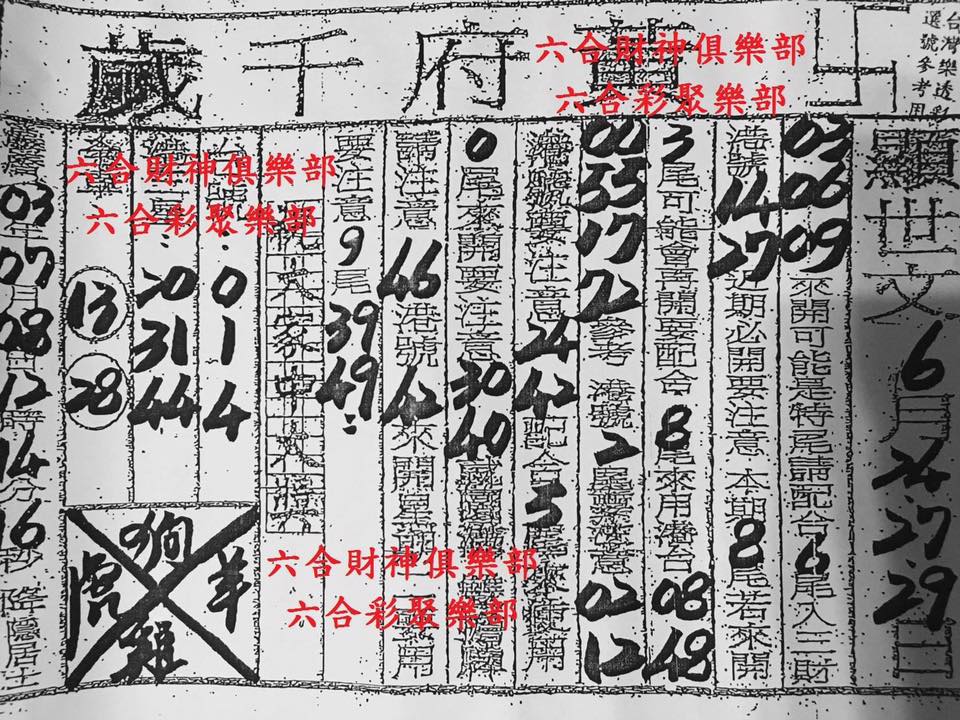 台灣樂透彩
選號參考用
府千歲
六合財神俱樂部
六合彩聚樂部
顯世文 6月24.27.29日
03 06 09 來開可能是特尾請配合6尾入三財
港號14 27近期必開要注意本期8尾若來開
3尾可能會再開要配合8尾來用港台08 48
00 55 17 72參考港號2尾 注意02 12
港號要注意24 42配合5尾
0尾來開要注意30 40
請注意46港號42來開星期 用
要注意9尾39 49:
六合財神俱樂部
六合彩聚樂部
: 0 1 4
: 20 31 44
13 28
狗
虎 羊
雞
六合財神俱樂部
六合彩聚樂部
03年07月08日12時14分16秒降隱居士